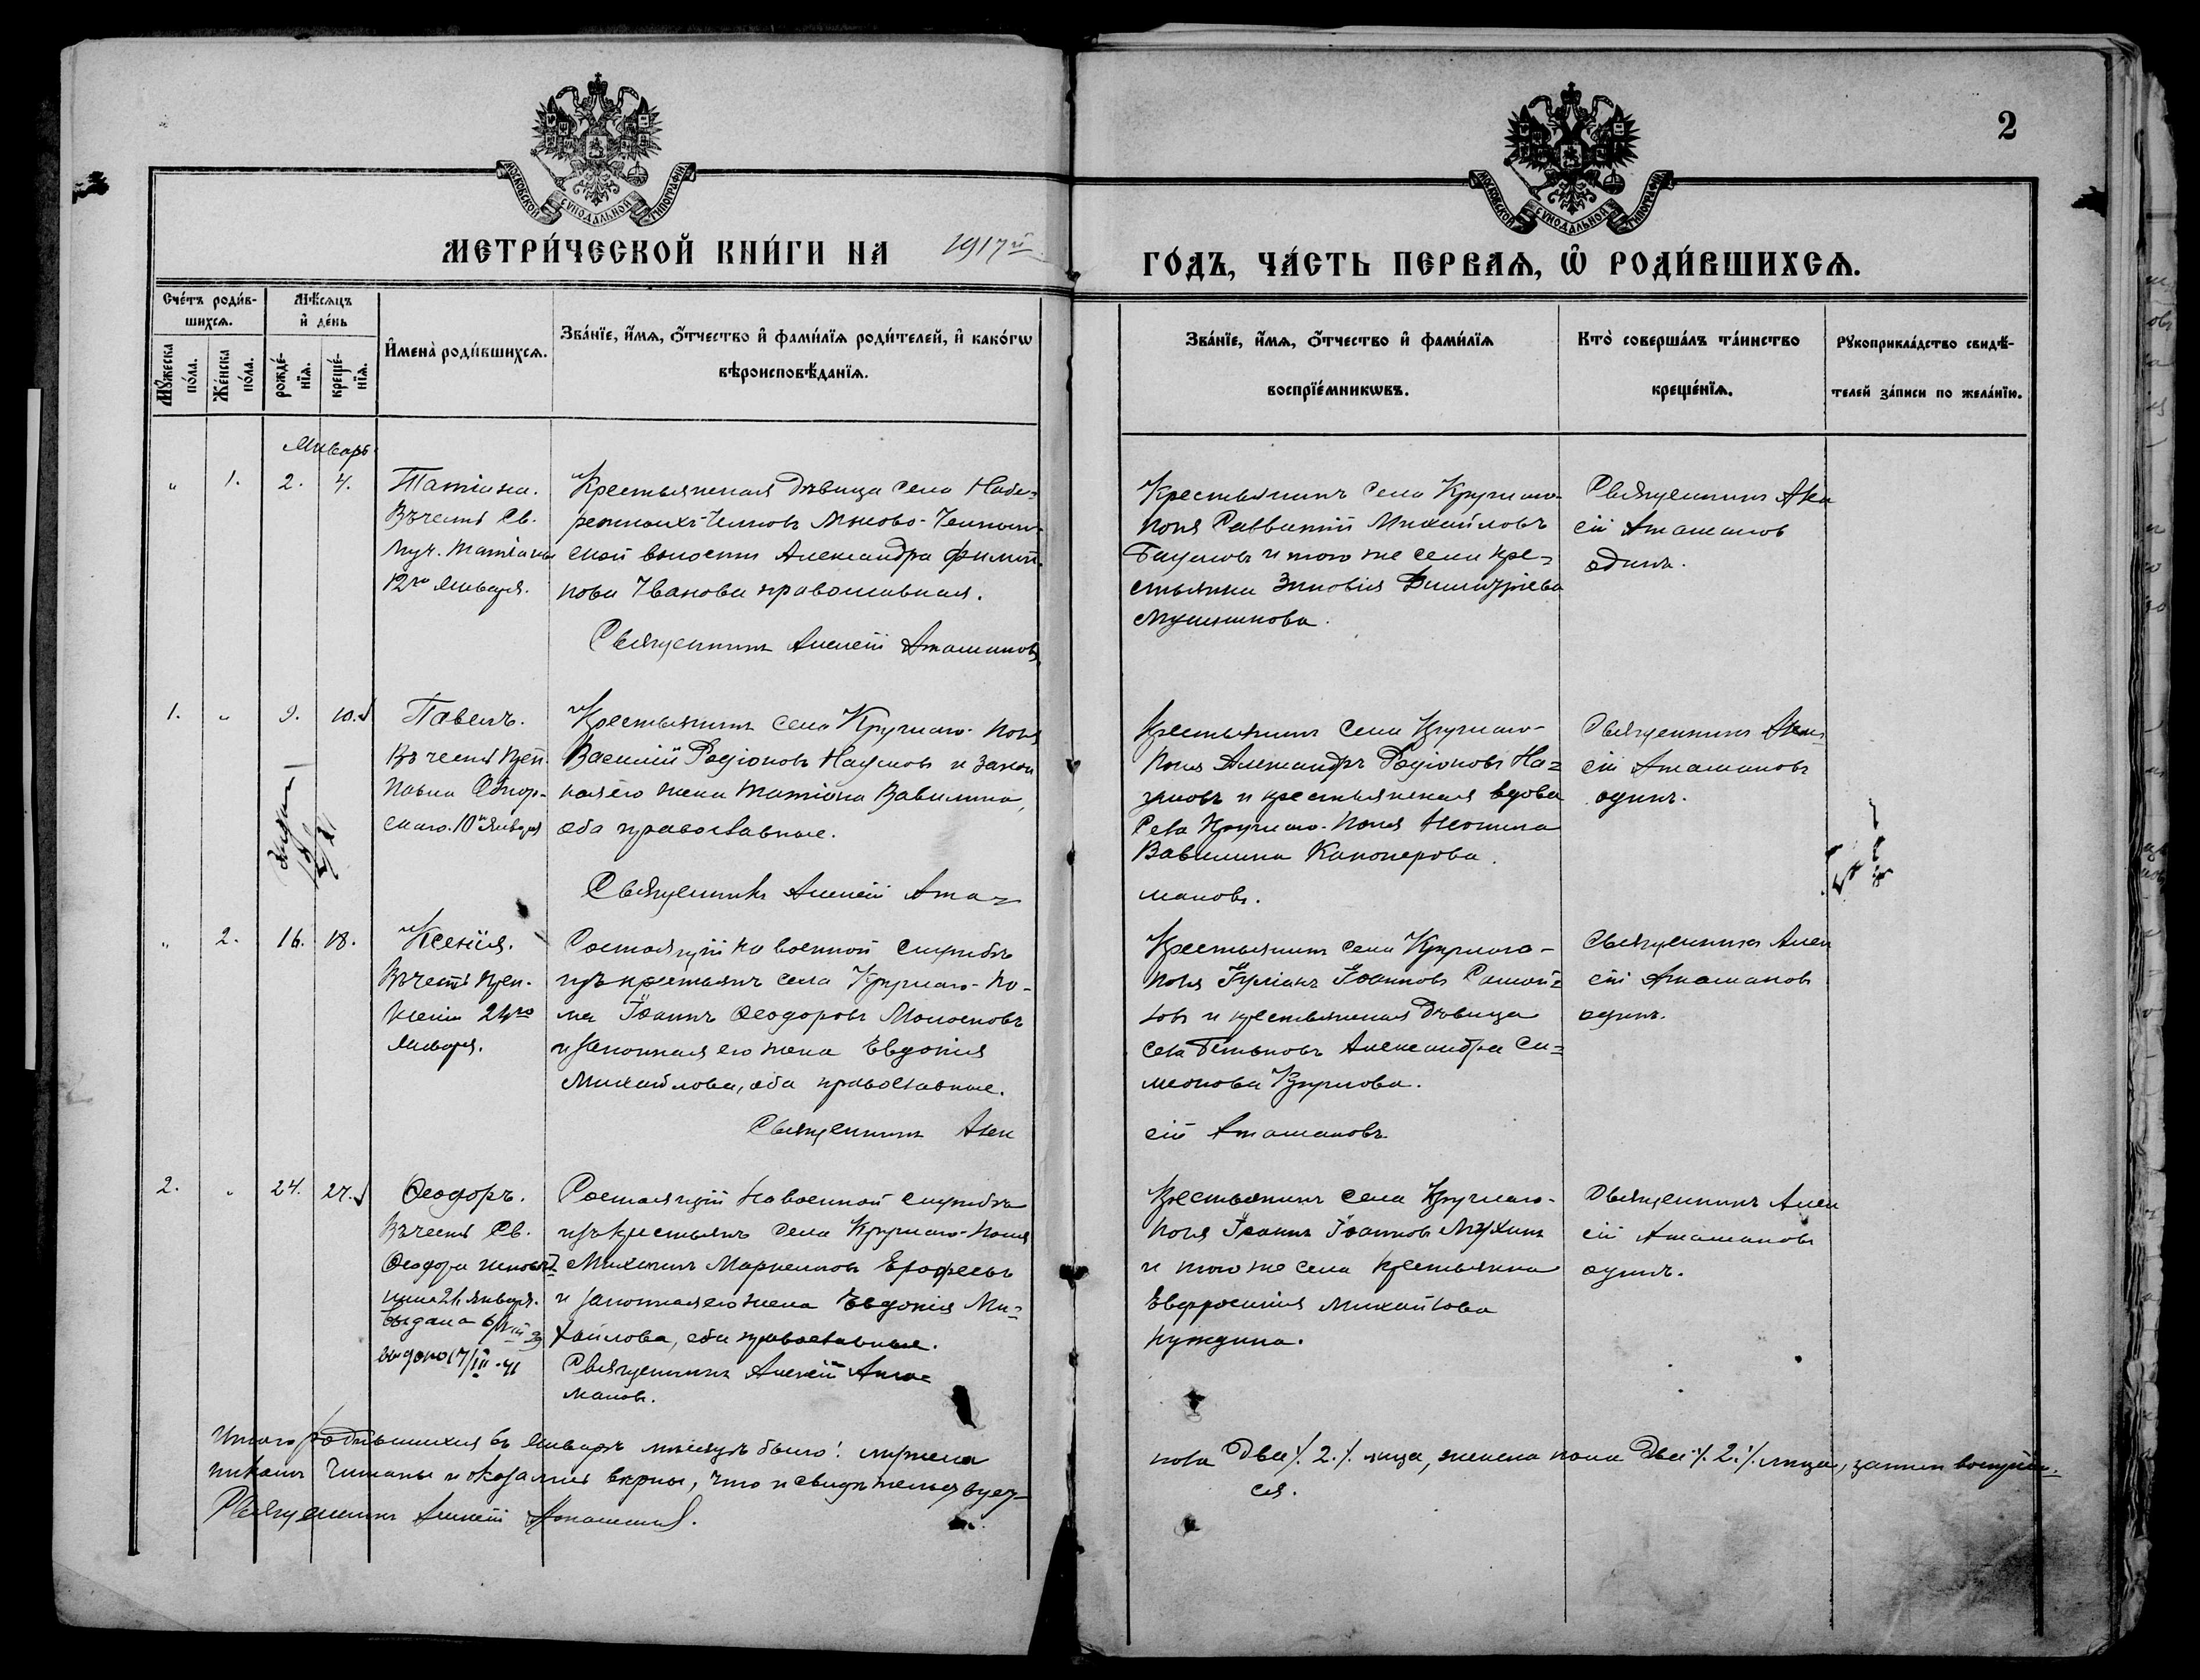 МОСКОВСКОЙ СѴНОДАЛЬНОЙ ТИПОГРАФІИ
МОСКОВСКОЙ СѴНОДАЛЬНОЙ ТИПОГРАФІИ
2
МЕТРИ́ЧЕСКОЙ КНИ́ГИ НА 1917й
ГО́ДЪ, ЧА́СТЬ ПЕРВАѦ, Ѡ РОДИ́ВШИХСѦ.
Сче́тъ роди́в-
шихсѧ.
Мꙋ́жеска
по́ла.
Же́нска
по́ла.
Мѣ́сѧцъ
и҆ де́нь
рожде́-
нїѧ.
креще́-
нїѧ.
И҆мена̀ роди́вшихсѧ.
Зва́нїе, и҆́мѧ, ѻ҆́тчество и҆ фами́лїѧ роди́телей, и҆ како́гѡ
вѣроисповѣ́данїѧ.
Зва́нїе, и҆́мѧ, ѻ҆́тчество и҆ фами́лїѧ
воспрїе́мникѡвъ.
Кто̀ соверша́лъ та́инство
креще́нїѧ.
Рꙋкоприкла́дство свидѣ́-
телей за́писи по жела́нїю.
Январь.
" 1. 2. 4.
Татіана.
Въ честь Св.
муч. Татіаны
12го Января.
Крестьянская дѣвица села Набе=
режныхъ-Челновъ Мысово-Челнин-
ской волости Александра Филип-
пова Иванова православная.
Священникъ Алексій Аташановъ
Крестьянинъ села Круглаго-
Поля Савватій Михайловъ
и того же села кре=
стьянка Зиновія Димитріева
Священникъ Алек
сій Аташановъ
одинъ.
1. " 9. 10.
Павелъ.
Въ честь Преп.
Павла Обнор-
скаго. 10го Января
Крестьянинъ села Круглаго-Поля
Василій Родіоновъ Наумовъ и закон
ная его жена Татіана Вавилина,
оба православные.
Священникъ Алексій Ата=
Крестьянинъ села Круглаго-
Поля Александръ Родіоновъ На=
умовъ и крестьянская вдова
села Круглаго-Поля
Вавилина
мановъ.
Священникъ Алек-
сій Аташановъ
одинъ.
" 2. 16. 18.
Ксенія.
Въ честь Преп.
Ксеніи 24го
Января.
Состоящій на военной службѣ
изъ крестьянъ села Круглаго-По-
ля Іоаннъ Ѳеодоровъ
и законная его жена Евдокія
Михайлова, оба православные.
Священникъ Алек
Крестьянинъ села Круглаго-
Поля Іуліанъ Іоанновъ Самой=
ловъ и крестьянская дѣвица
села Бетьковъ Александра Си=
меонова Круглова.
сій Аташановъ
Священникъ Алек
сій Аташановъ
одинъ.
2. " 24. 27.
Ѳеодоръ.
Въ честь Св.
Ѳеодора
21 Января.
Выдана
выдано 17/III-41
Состоящій на военной службѣ
изъ крестьянъ села Круглаго-Поля
Михаилъ Маркелловъ Ерофеевъ
и законная его жена Евдокія Ми=
хайлова, оба православные.
Священникъ Алексій Ата=
мановъ.
Крестьянинъ села Круглаго-
Поля Іоаннъ Іоанновъ Мухинъ
и того же села крестьянка
Евфросинія Михайлова
Нуждина.
Священникъ Алек
сій Аташановъ
одинъ.
Итого родившихся въ Январѣ мѣсяцѣ было: мужска
пола Два /. 2. /. лица, женска пола Два /. 2. /. лица, записи воспріем-
никамъ читаны и оказались вѣрны, что и свидѣтельствует-
ся.
Священникъ Алексій